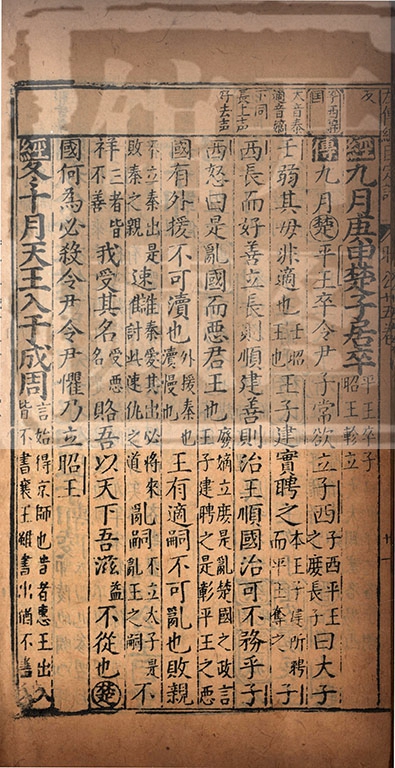 經九月庚申楚子居卒平王卒子昭王軫立
傳九月楚平王卒令尹子常欲立子西子西平王之庶長子曰大子
壬弱其母非適也壬昭王也王子建實聘之本王子建所聘而平王奪之子
西長而好善立長則順建善則治王順國治可不務乎子
西怒曰是亂國而惡君王也廢嫡立庶是亂楚國之政言王子建聘之是彰平王之惡
國有外援不可瀆也外援秦也瀆慢也王有適嗣不可亂也敗親
不立秦出是敗秦之親速讎秦愛其出必將來討此速仇之道亂嗣不立太子是亂王之嗣不
祥三者皆祥不善我受其名受惡名賂吾以天下吾滋益不從也楚
國何為必殺令尹令尹懼乃立昭王
經冬十月天王入于成周言始得京師也皆不書襄王雖書出猶不書入
大音泰
適音嫡
不同
長上声
好去声